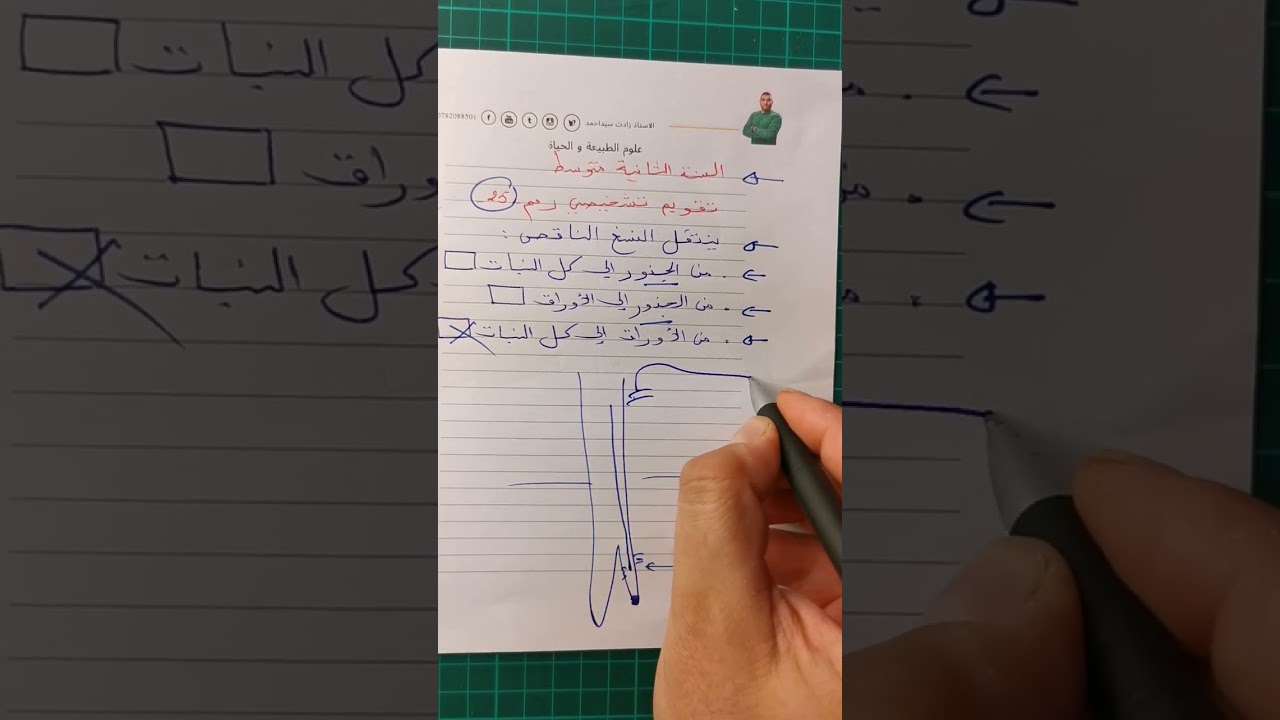 0782088501 الاستاذ زادت سيداحمد
علوم الطبيعة و الحياة
السنة الثانية متوسط
تقويم تشخيصي رقم 25
ينتقل النسغ الناقص :
. من الجذور إلى كل النبات
. من الجذور إلى الأوراق
. من الأوراق إلى كل النبات